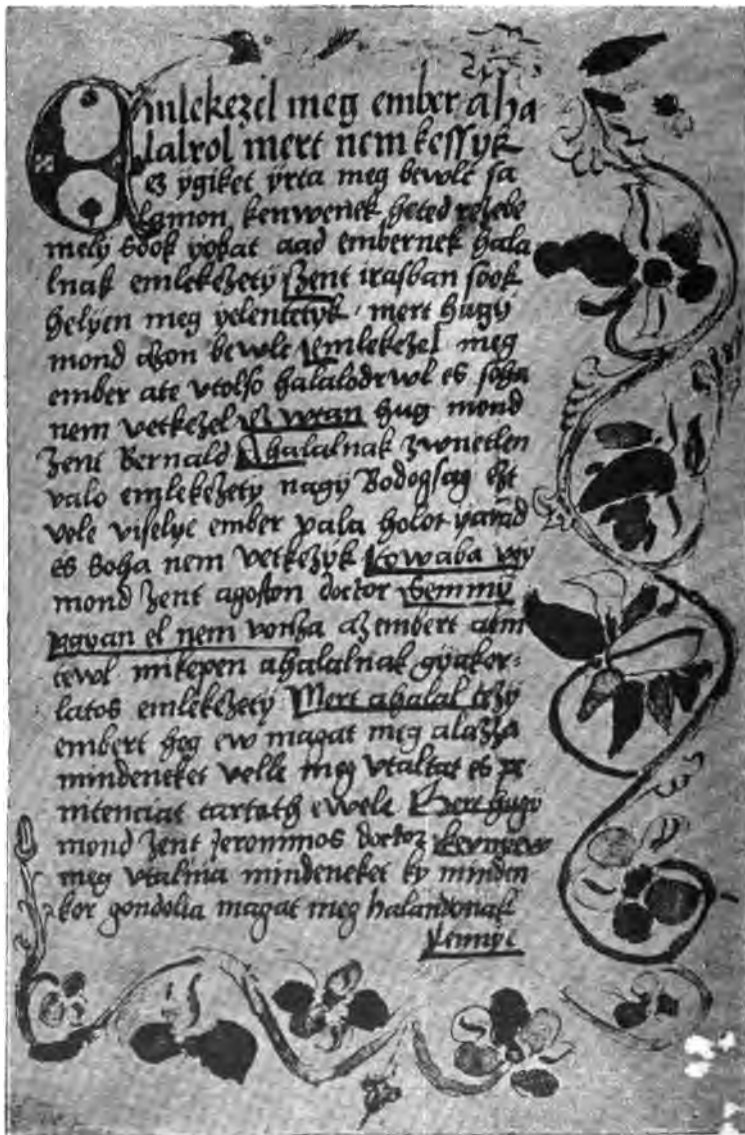 Emlekezel meg ember aha
lalrol mert nem kessyk
ez ygiket yrta meg bewlc sa
lamon kenwenek heted rezebe
mely sook yokat aad embernek hala
lnak emlekezety Szent irasban sook
helyen meg yelentetyk mert hugy
mond azon bewlc Emlekezel meg
ember ate vtolso halalodrwl es soha
nem vetkezel hug mond
zent Bernald A halalnak zwnetlen
valo emlekezety nagy Bodogsag ezt
vele viselye ember vala holot
es soha nem vetkezyk Towaba vgy
mond zent agoston doctor Semmy
vgyan el nem vonsza azembert
mikepen ahalalnak gyakor-
latos emlekezety Mert ahalal tezy
embert hog ew magat meg alazza
mindeneket velle meg vtaltat es pe-
nitenciat tartath ewele Mert hugy
mond zent Jeronimos doctor
meg vtalnia mindeneket ky minden
kor gondolia magat meg halandonak